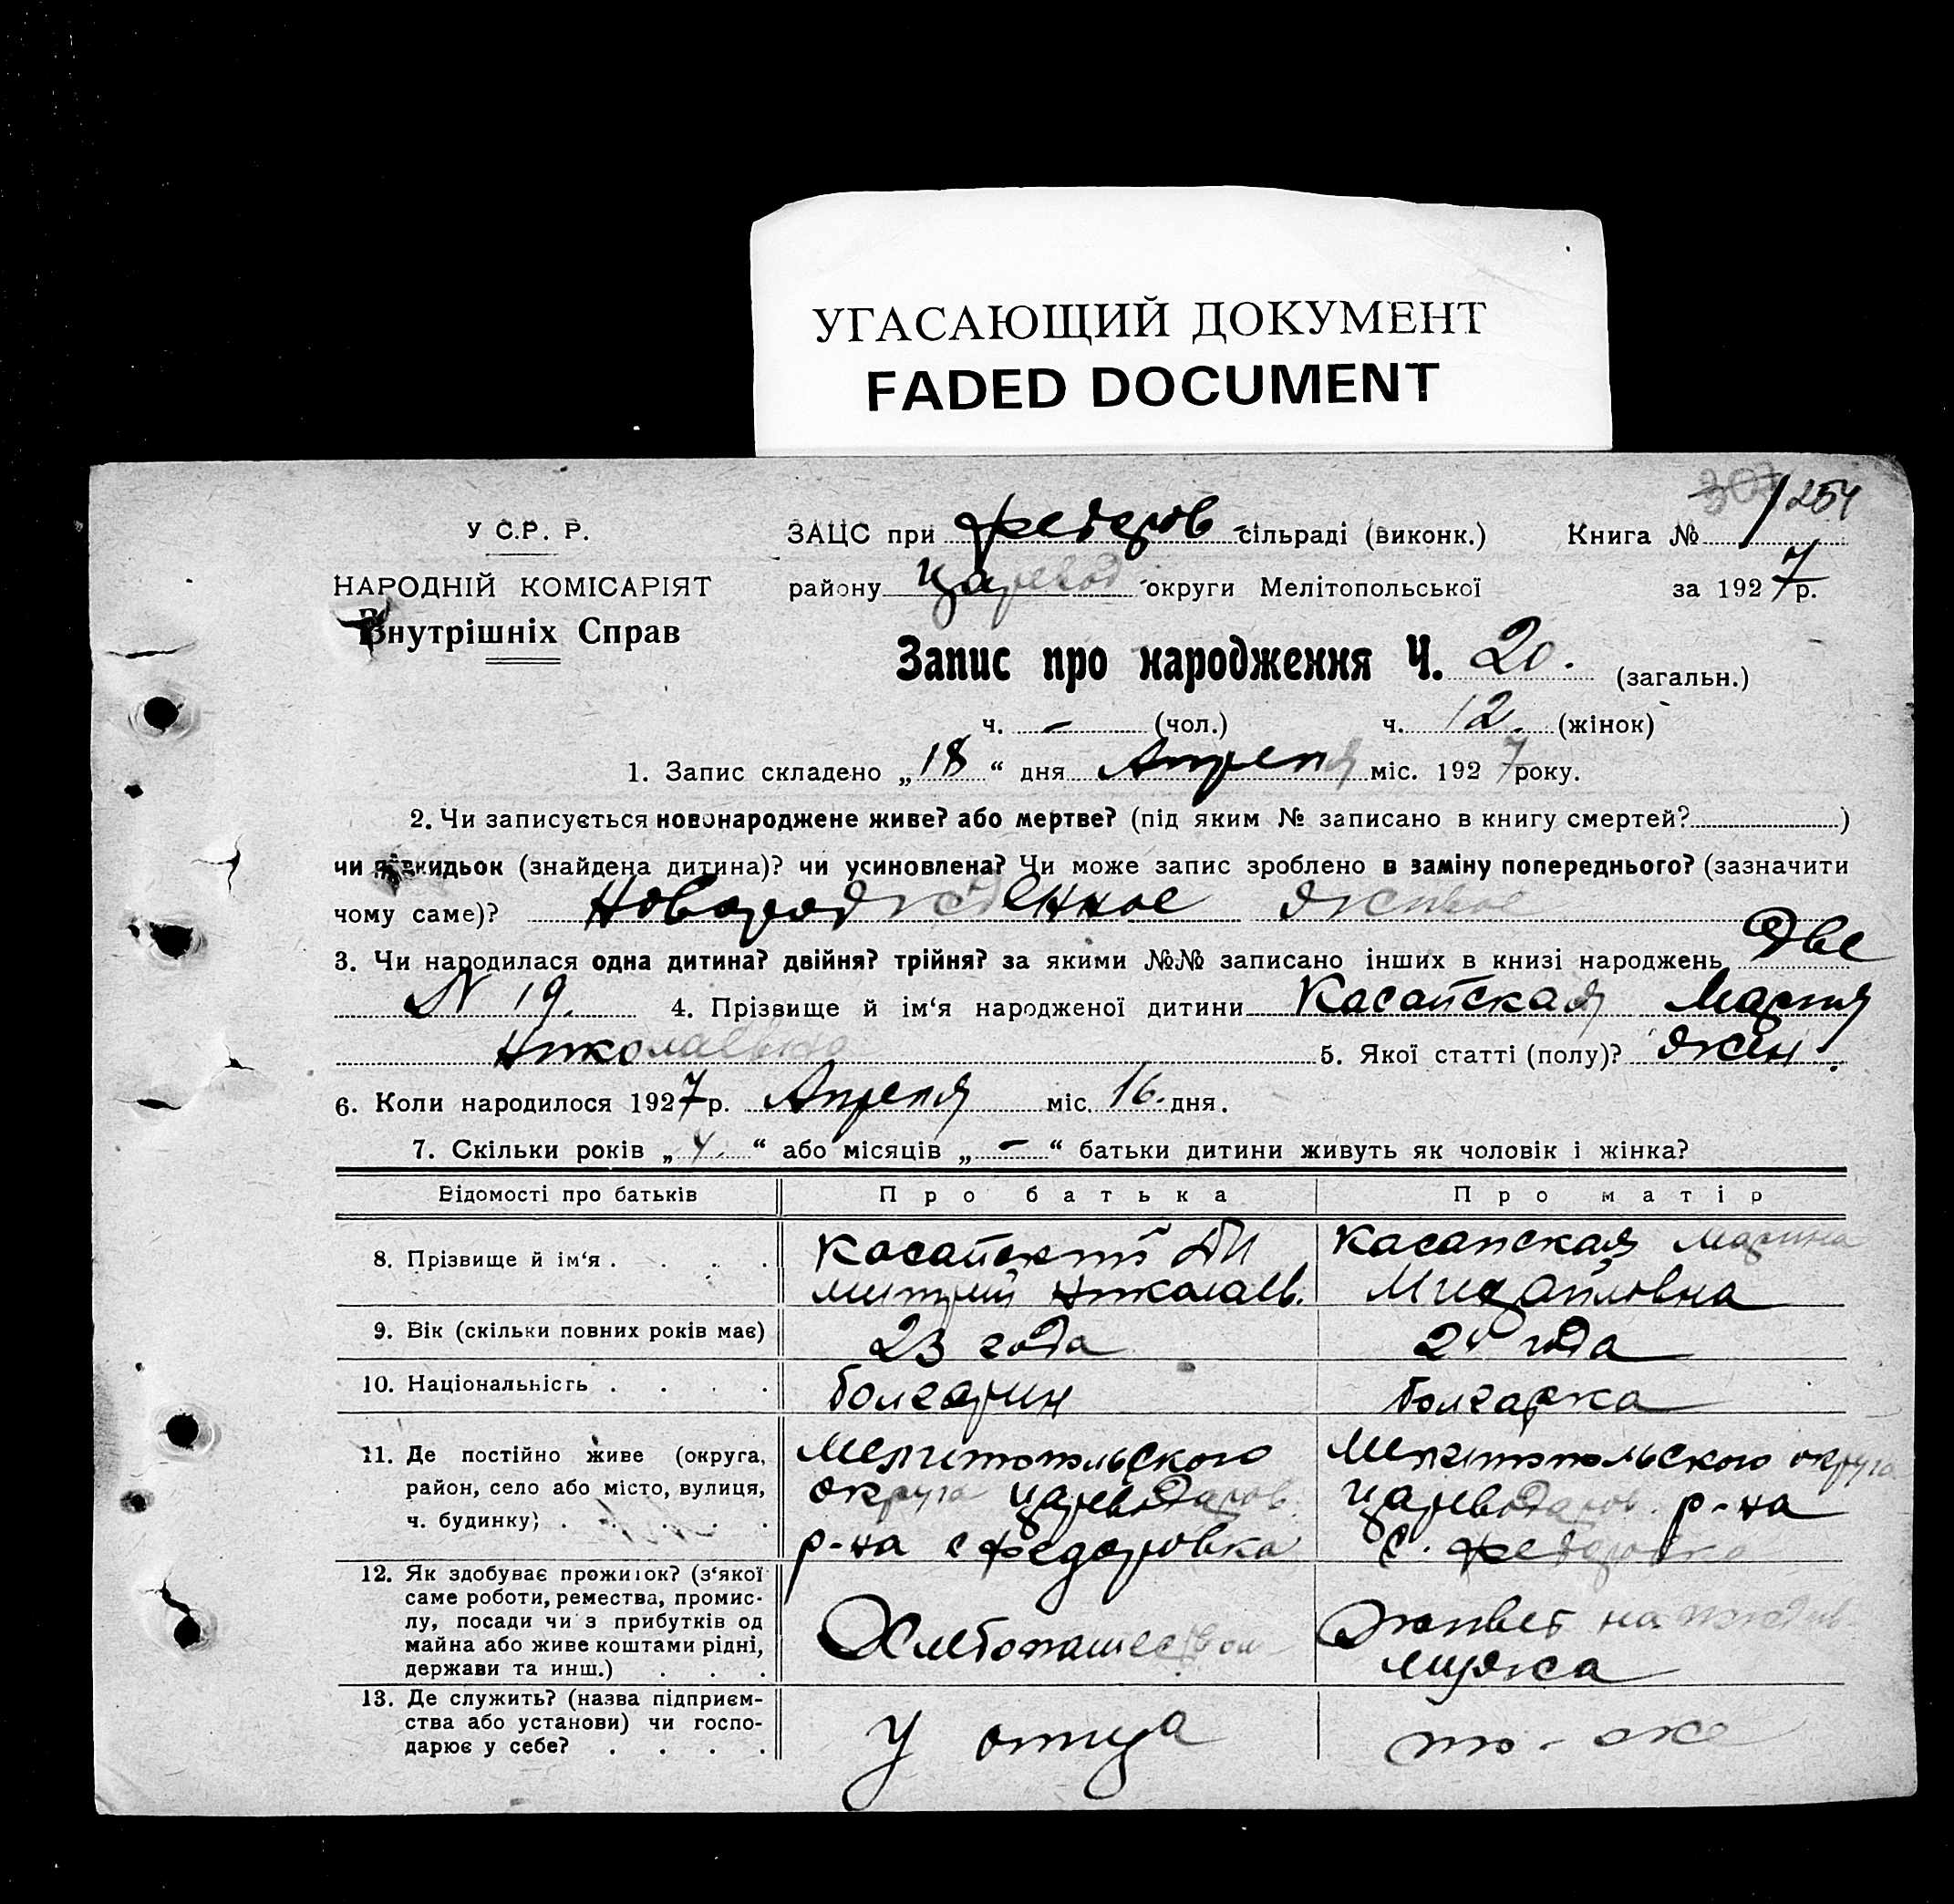 УГАСАЮЩИЙ ДОКУМЕНТ
FADED DOCUMENT
307 254
У С.Р. Р. ЗАЦС при Федоров сільраді (виконк.) Книга № 1
НАРОДНІЙ КОМІСАРІЯТ району Царевод округи Мелітопольської за 1927 р.
Внутрішніх Справ
Запис про народження Ч. 20. (загальн.)
ч. - (чол.) ч. 12. (жінок)
1. Запис складено „18“ дня Апреля міс. 1927 року.
2. Чи записується новонароджене живе? або мертве? (під яким № записано в книгу смертей? )
чи підкидьок (знайдена дитина)? чи усиновлена? Чи може запис зроблено в заміну попереднього? (зазначити
чому саме)? Новорожденное живое
3. Чи народилася одна дитина? двійня? трійня? за якими №№ записано інших в книзі народжень Две
N 19. 4. Прізвище й ім‘я народженої дитини Касапская Мария
Николаевна 5. Якої статті (полу)? жен.
6. Коли народилося 1927 р. Апреля міс. 16. дня.
7. Скільки років „4.“ або місяців „-“ батьки дитини живуть як чоловік і жінка?
Відомості про батьків Про батька Про матір
8. Прізвище й ім‘я . . . . Касапский Ди Касапская Марина
митрий Николаев. Михайловна
9. Вік (скільки повних років має) 23 года года
10. Національність . . . . болгарин болгарка
11. Де постійно живе (округа, Мелитопольского Мелитопольского округа
район, село або місто, вулиця, округа Цареводаров. Цареводаров. р-на
ч. будинку) . . . . р-на с Федоровка с. Федоровка
12. Як здобуває прожиток? (з‘якої
саме роботи, ремества, промис-
лу, посади чи з прибутків од Хлебопашеством живет на
майна або живе коштами рідні, мужа
держави та инш.) . . .
13. Де служить? (назва підприєм-
ства або установи) чи госпо- У отца то-же
дарює у себе? . . . .